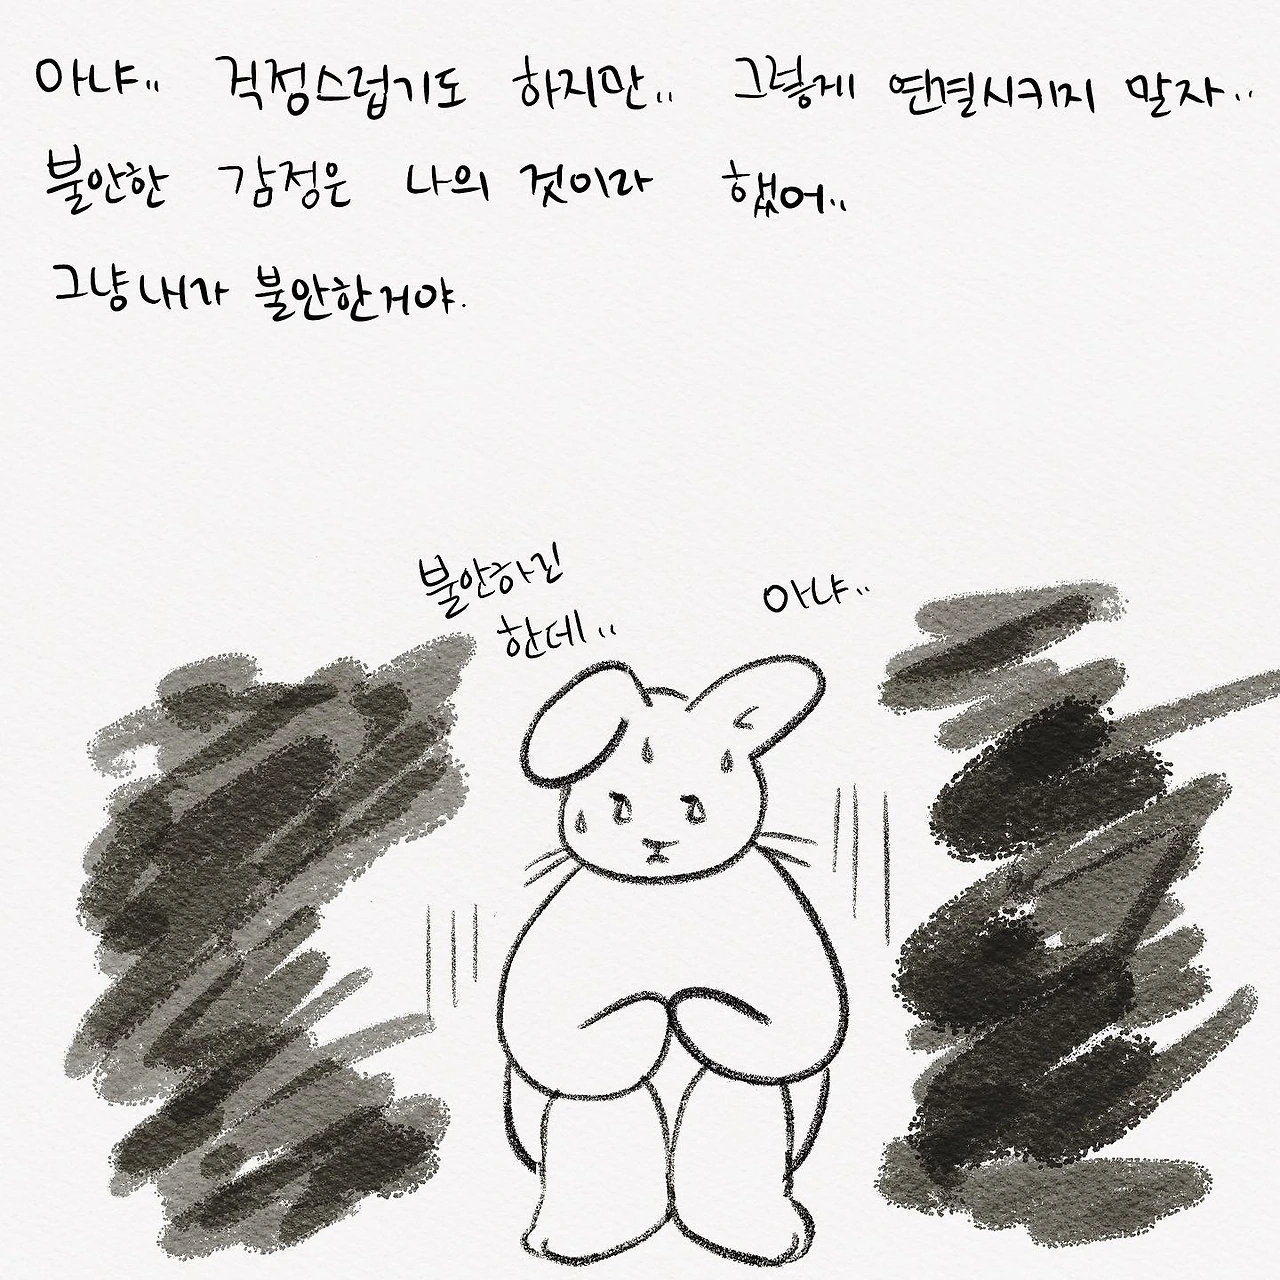 아냐.. 걱정스럽기도 하지만.. 그렇게 연결시키지 말자..
불안한 감정은 나의 것이라 했어..
그냥 내가 불안한거야.
불안하긴
한데..
아냐..